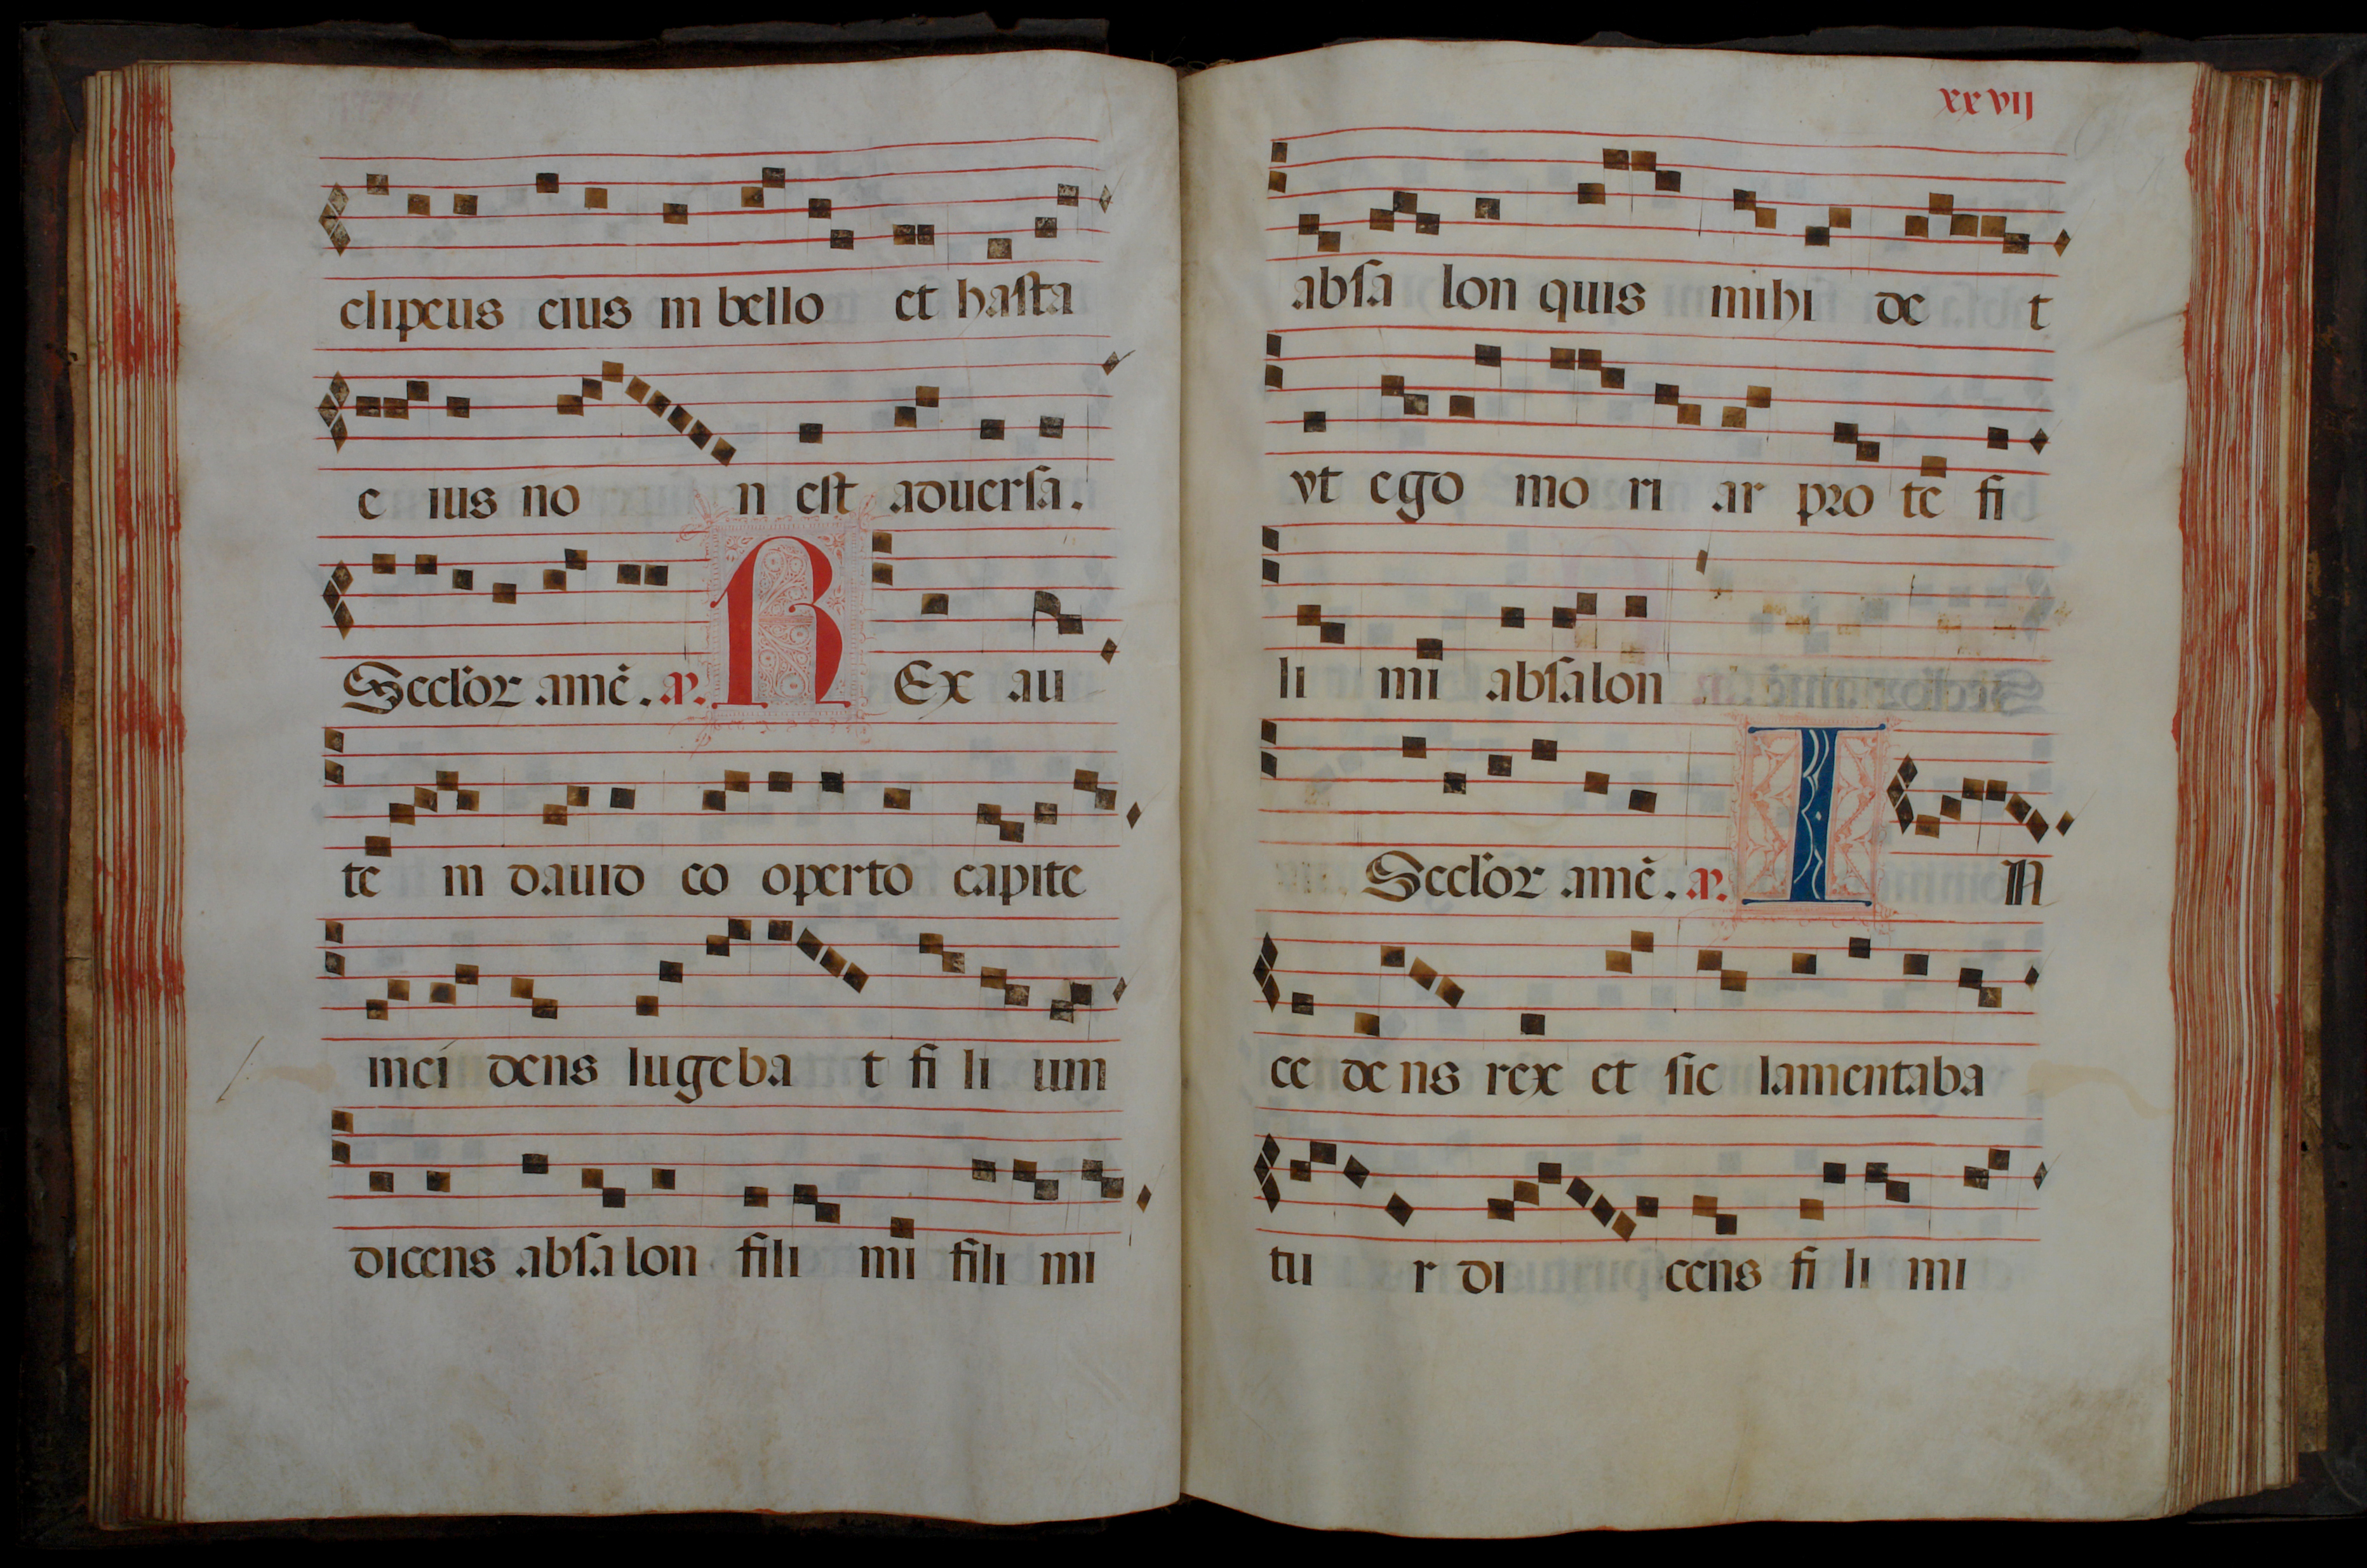 clipeus eius in bello et hasta
e ius no n est aduersa.
Seclor̃ amẽ. aͫ. REx au
te in dauid co operto capite
inci dens lugeba t fi li um
dicens absalon fili mi fili mi
xxvij
absa lon quis mihi de t
vt ego mo ri ar pro te fi
li mi absalon
Seclor̃ amẽ. aͫ. IN
ce de ns rex et sic lamentaba
tu r di cens fi li mi